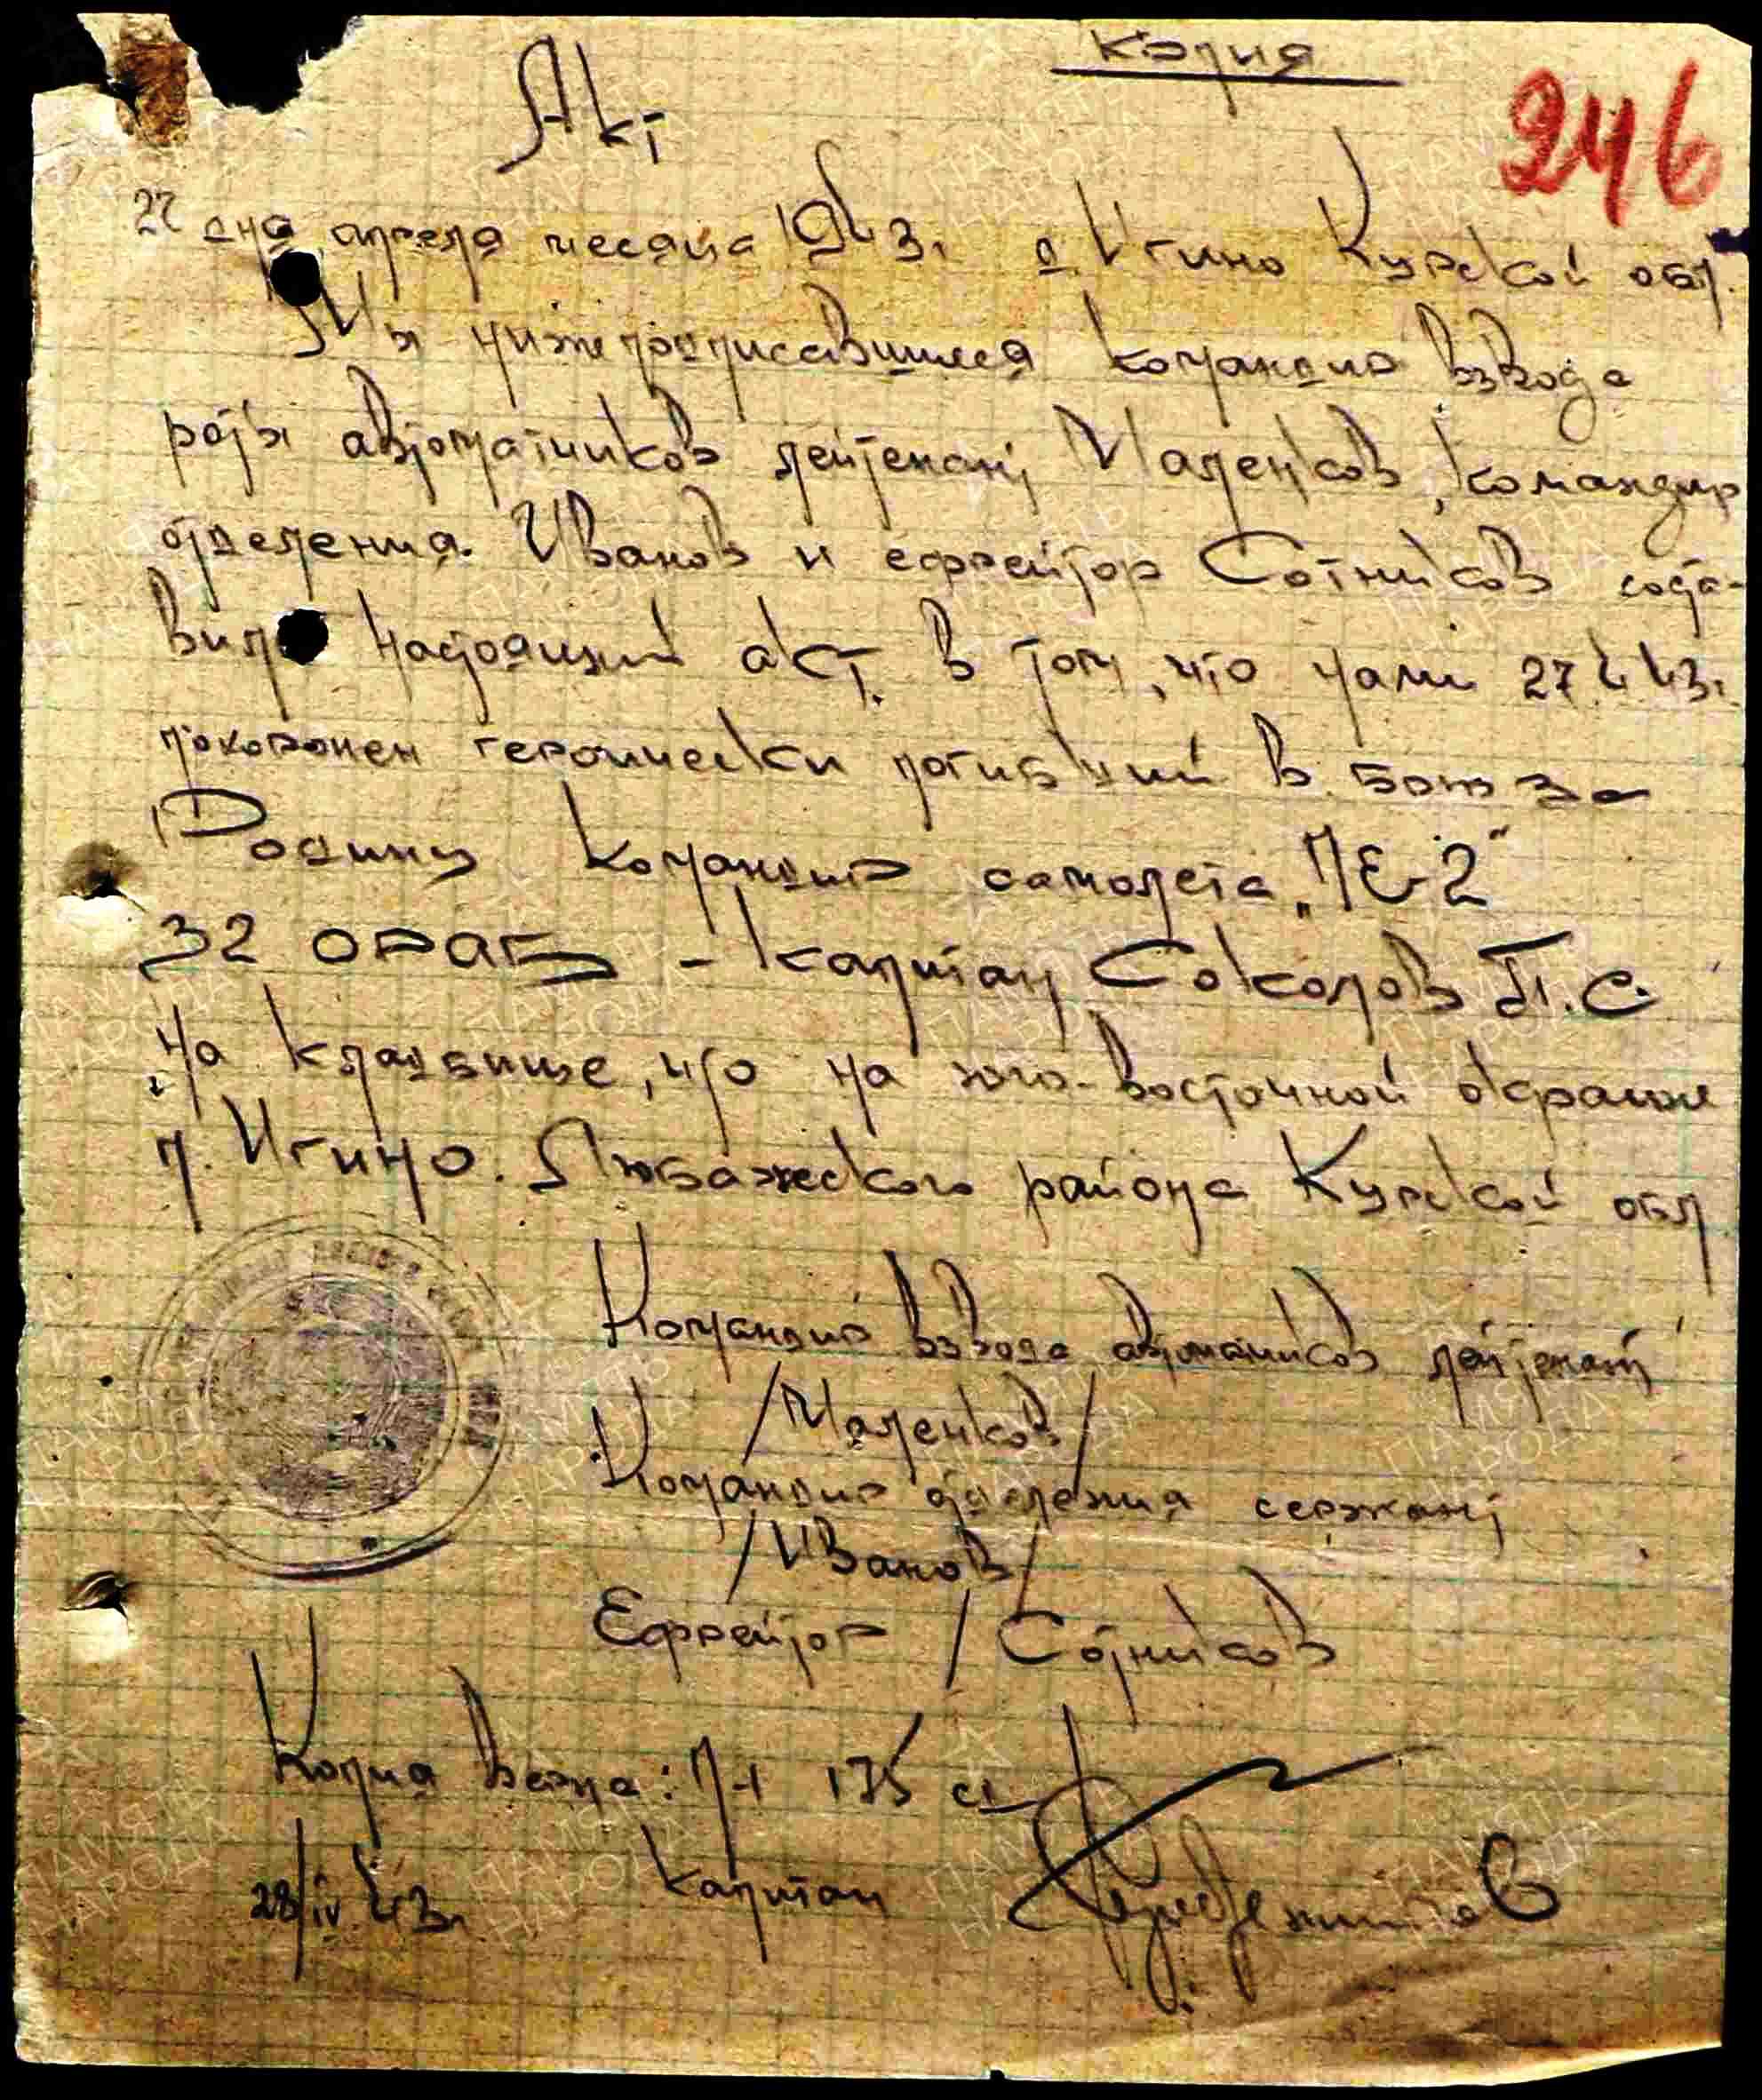 Копия
246
Акт
27 дня апреля месяца 1943г. д. Игино Курской обл.
Мы нижеподписавшиеся командир взвода
роты автоматчиков лейтенант Маленков, командир
отделения Иванов и ефрейтор Сотников соста-
вили настоящий акт в том, что нами 27.4.43г.
похоронен героически погибший в боях за
Родину командир самолета „ПЕ-2"
32 ОРАП – капитан Соколов П.С.
на кладбище, что на юго-восточной окраине
д. Игино. Любажского района Курской обл
Командир взвода автоматчиков лейтенант
/Маленков/
Командир отделения сержант
/Иванов/
Ефрейтор /Сотников
Копия верна: 175
28/IV.43г. капитан